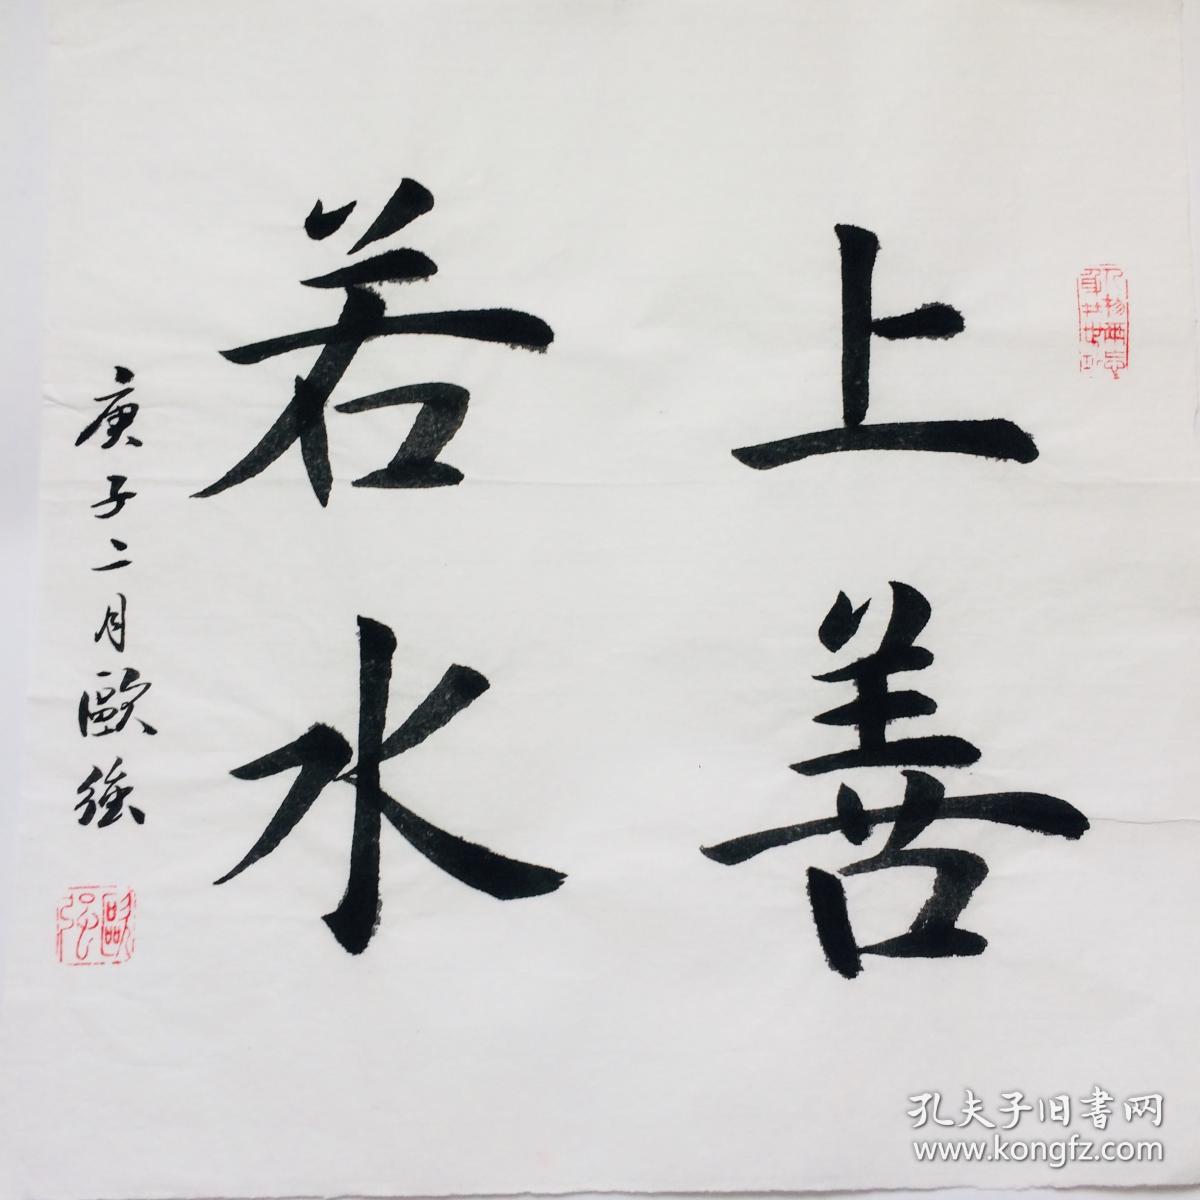 上善
若水
庚子二月歐強
歐強
孔夫子旧書网
www.kongfz.com